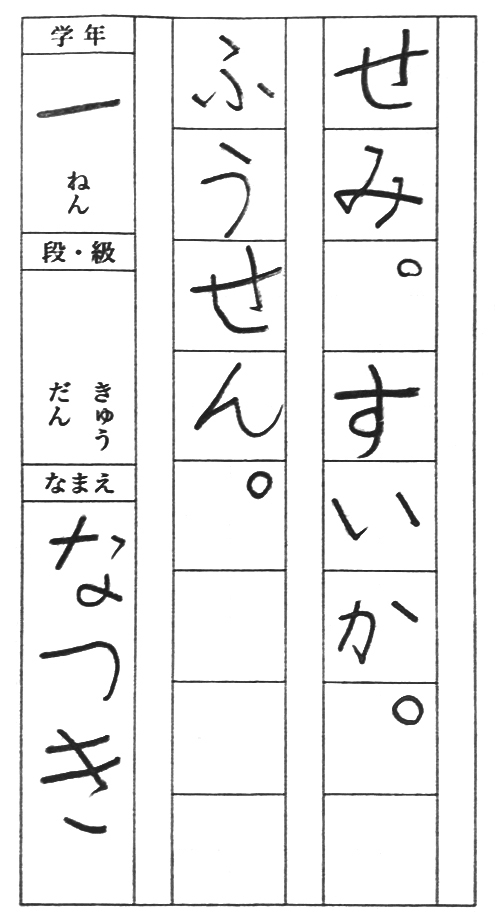 せみ。すいか。
ふうせん。
学年
一ねん
段・級
きゅう
だん
なまえ
なつき